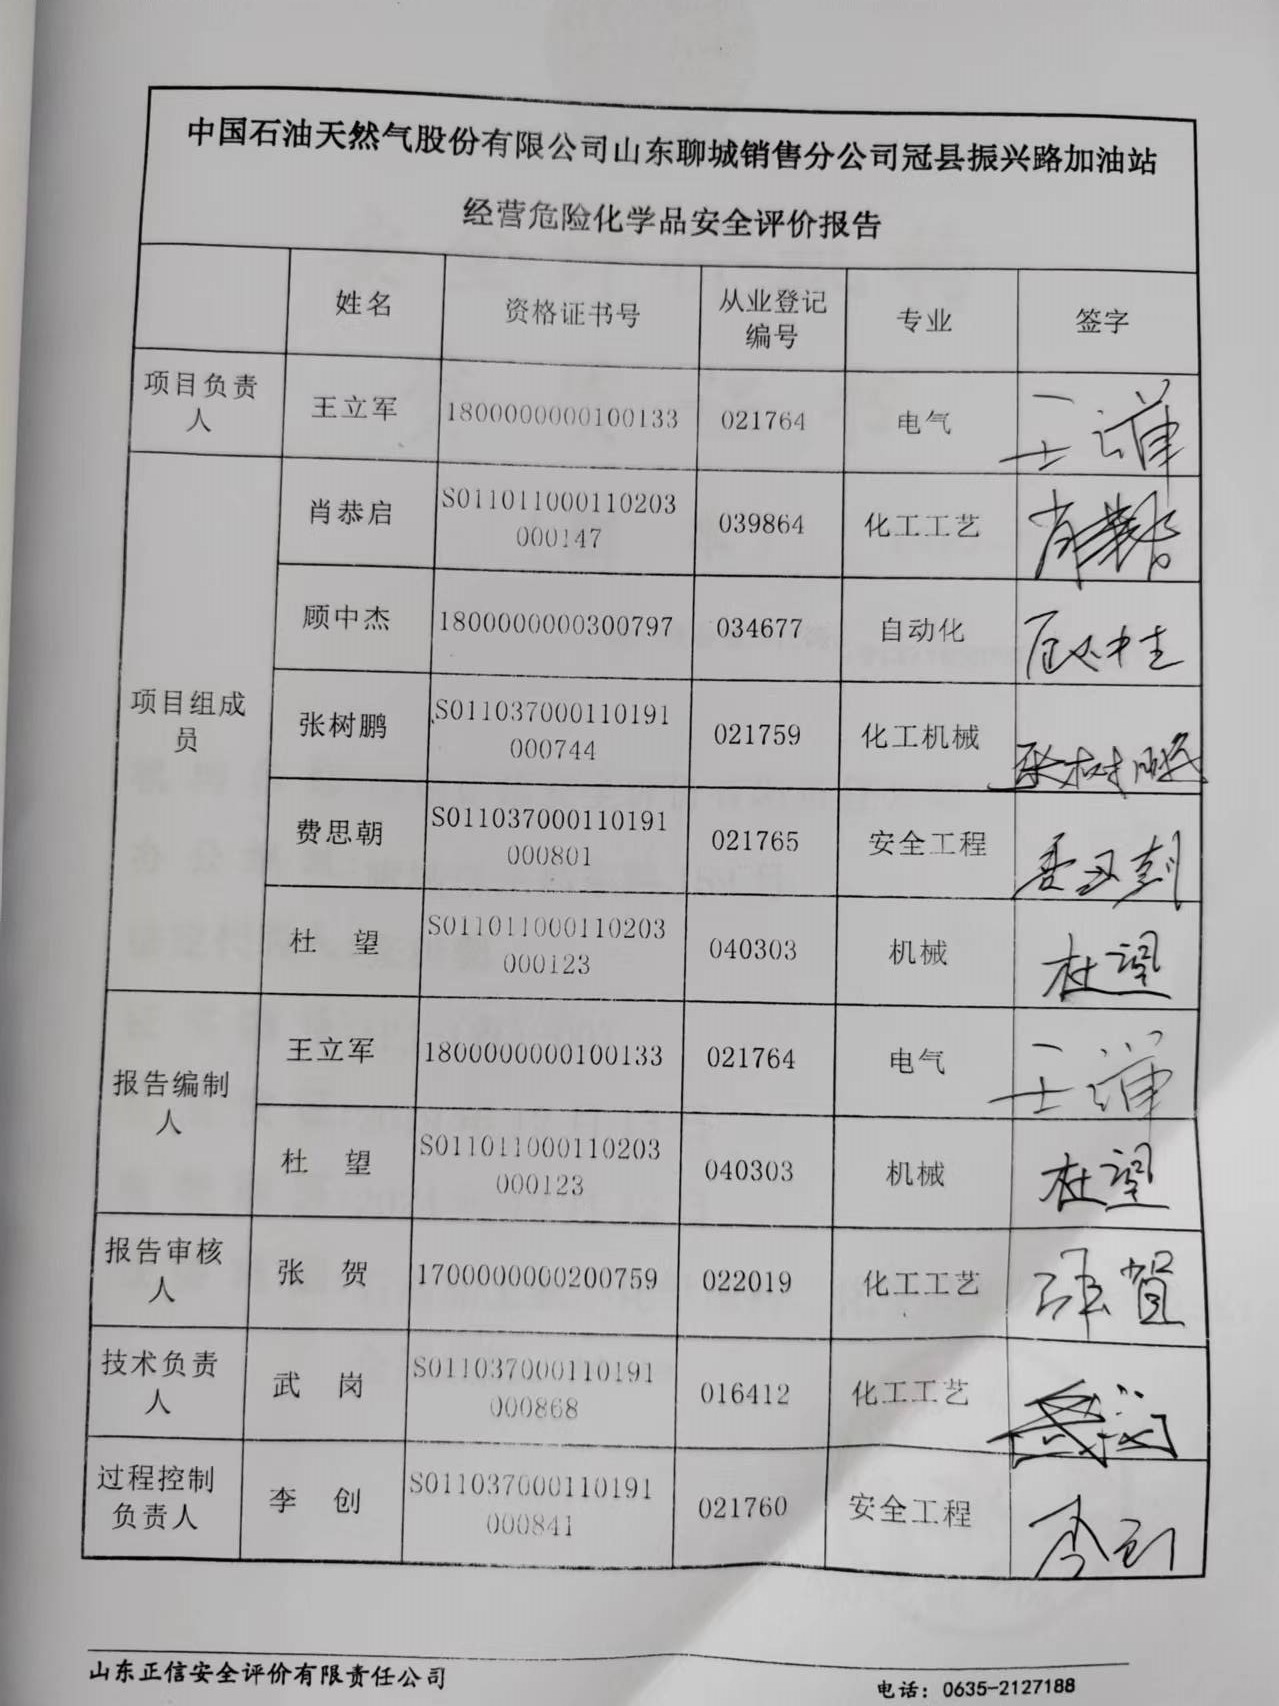 中国石油天然气股份有限公司山东聊城销售分公司冠县振兴路加油站
经营危险化学品安全评价报告
姓名
资格证书号
从业登记
编号
专业
签字
项目负责
人
王立军
1800000000100133
021764
电气
王立军
项目组成
员
肖恭启
S011011000110203
000147
039864
化工工艺
肖恭启
顾中杰
1800000000300797
034677
自动化
顾中杰
张树鹏
S011037000110191
000744
021759
化工机械
张树鹏
费思朝
S011037000110191
000801
021765
安全工程
费思朝
杜 望
S011011000110203
000123
040303
机械
杜望
报告编制
人
王立军
1800000000100133
021764
电气
王立军
杜 望
S011011000110203
000123
040303
机械
杜望
报告审核
人
张 贺
1700000000200759
022019
化工工艺
张贺
技术负责
人
武 岗
S011037000110191
000868
016412
化工工艺
过程控制
负责人
李 创
S011037000110191
000841
021760
安全工程
李创
山东正信安全评价有限责任公司
电话：0635-2127188